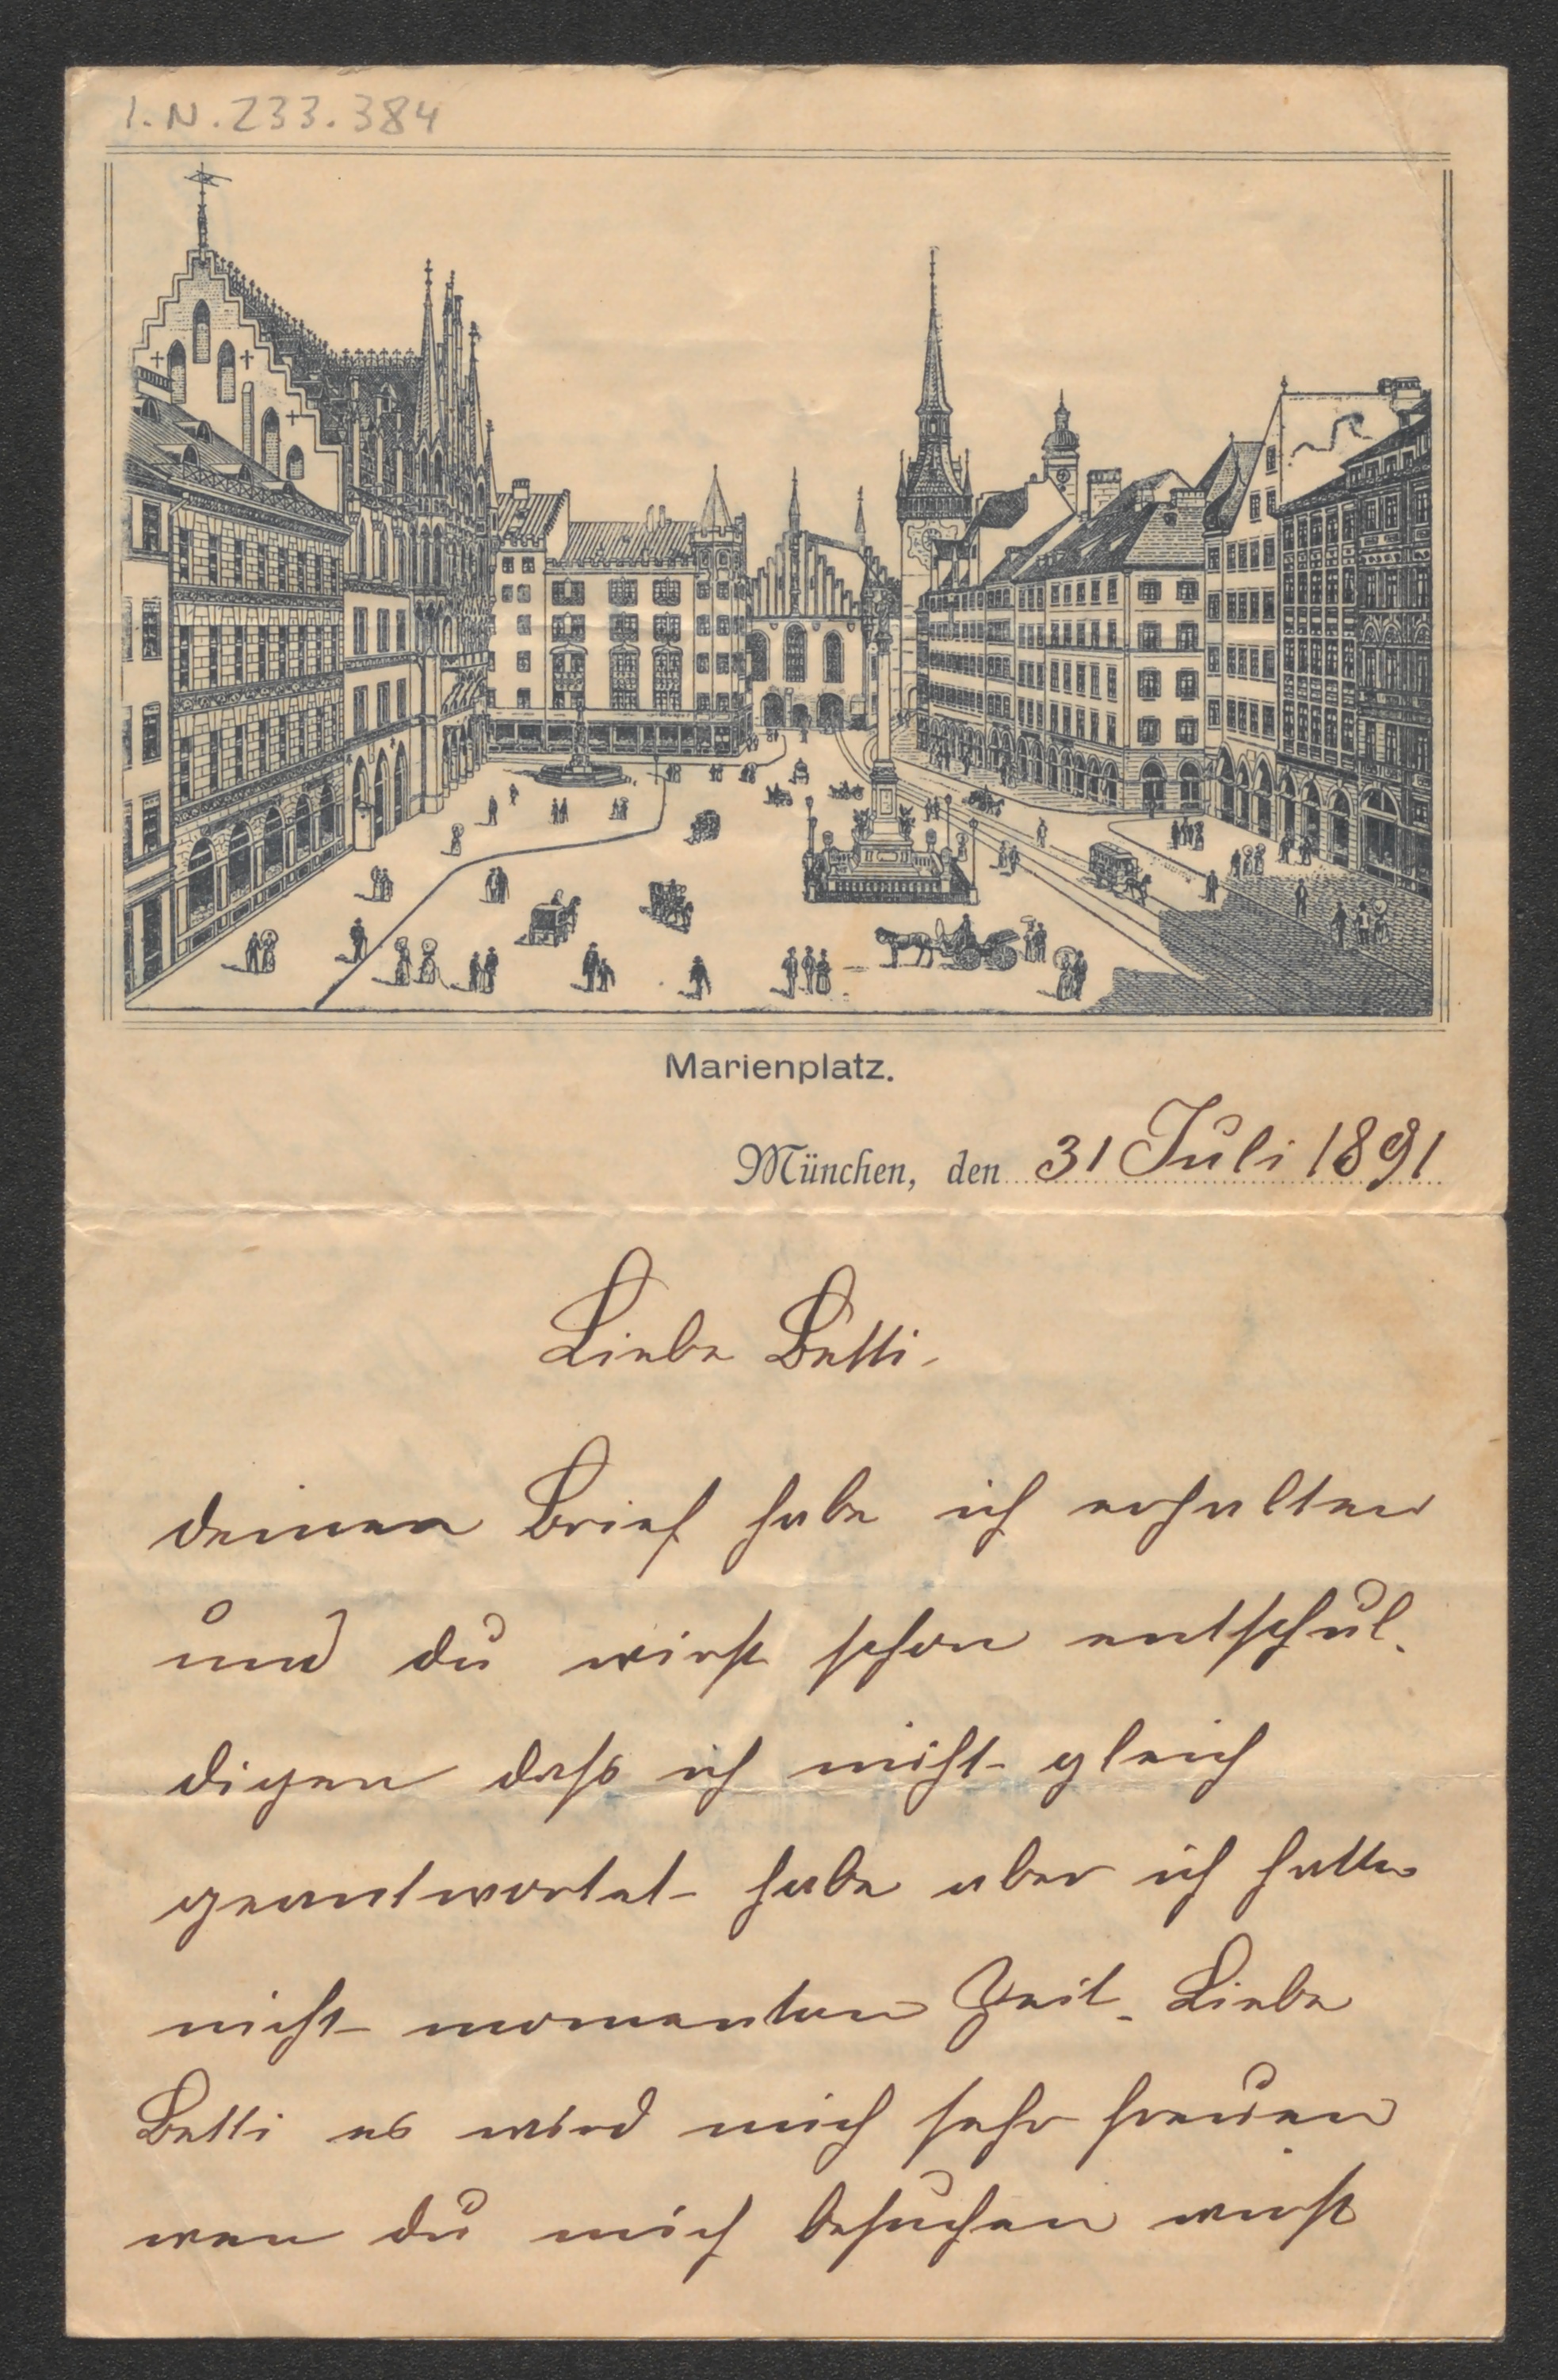 I.N. 233.384
Marienplatz.
München, den 31 Juli 1891
Liebe Betti.
deinen Brief habe ich erhalten
und du wirst schon entschul-
digen daß ich nicht gleich
geantwortet habe aber ich hatte
nicht momentan Zeit. Liebe
Betti es wird mich sehr freuen
wen du mich besuchen wirst